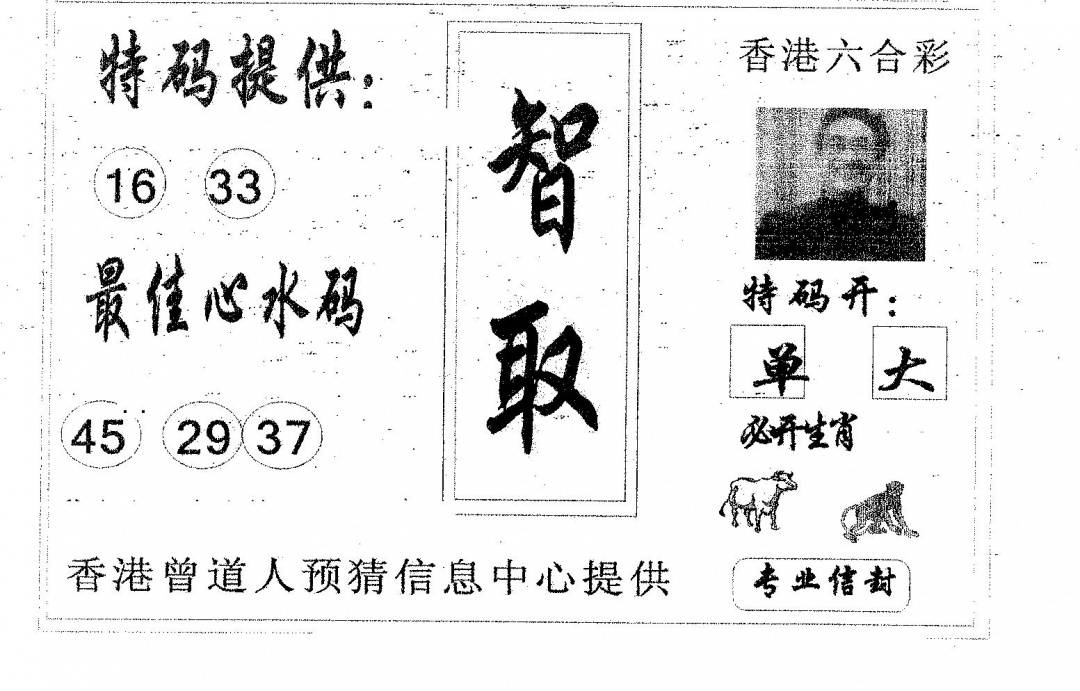 特码提供：
16 33
最佳心水码
45 29 37
智
取
香港六合彩
特码开：
单 大
必开生肖
专业信封
香港曾道人预猜信息中心提供